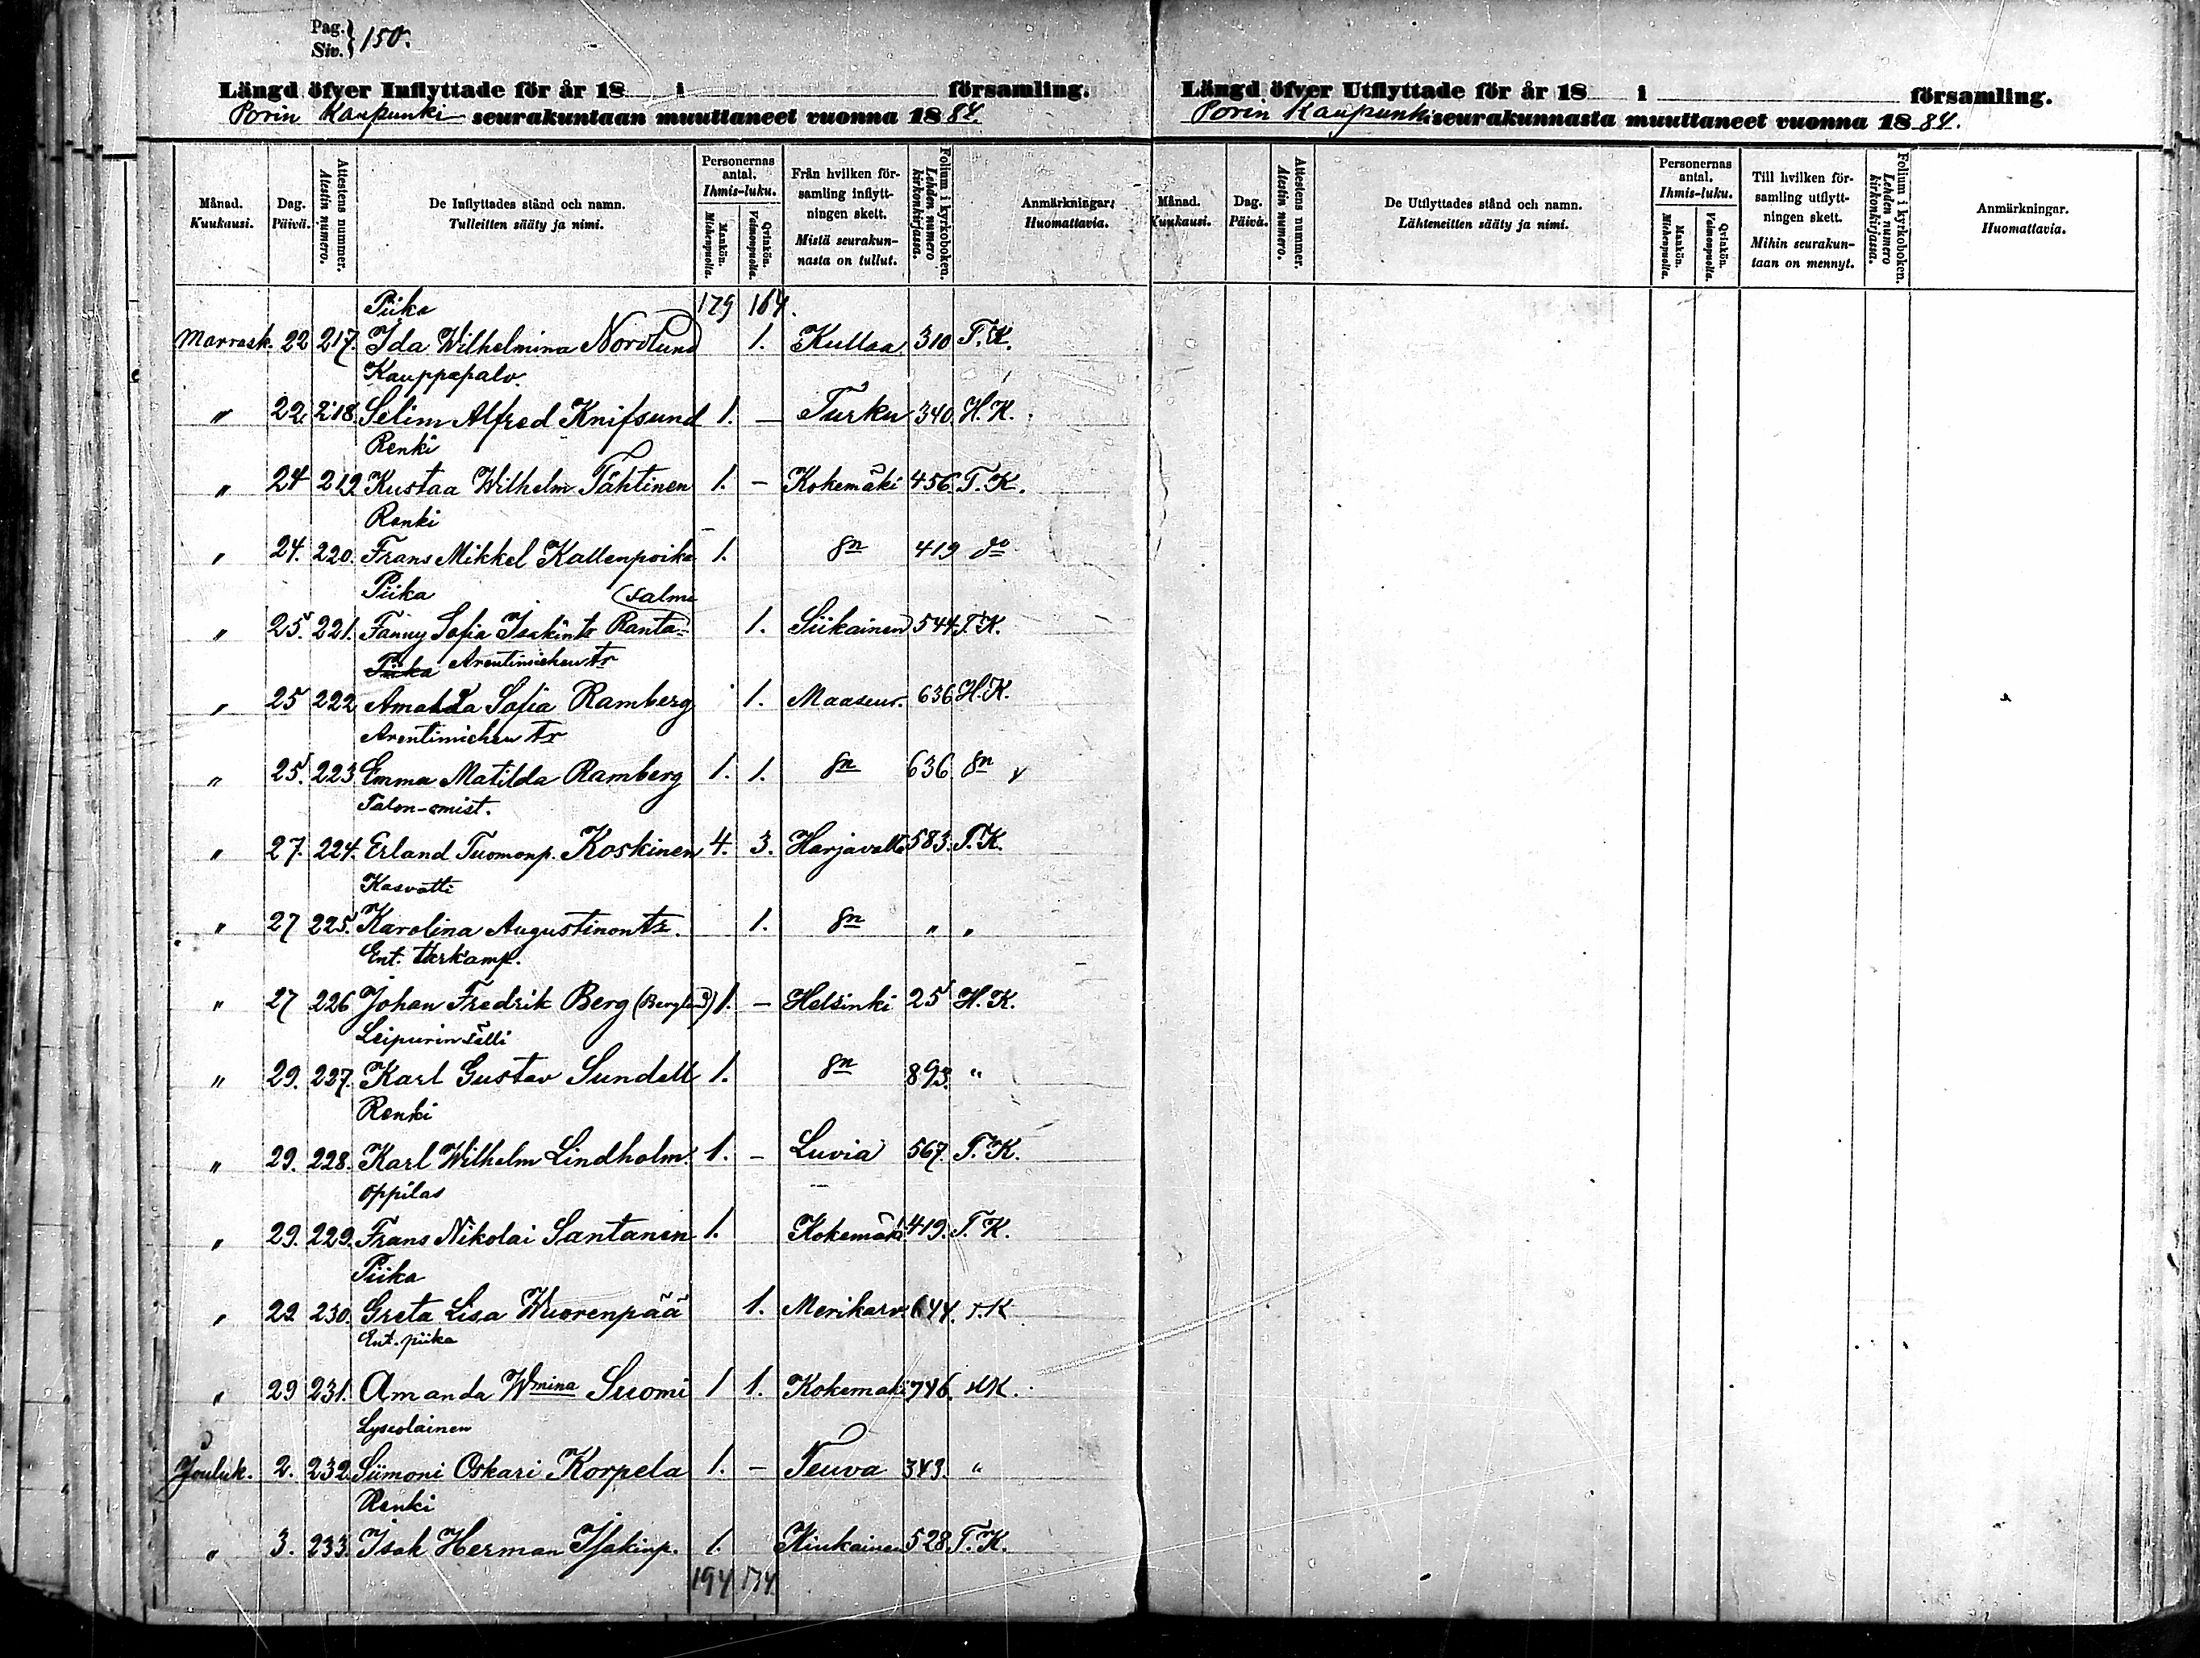 Pag. Siv. } 150.
Längd öfver Inflyttade för år 18 i församling.
Porin Kaupunki seurakuntaan muuttaneet vuonna 18 84.
Månad. Kuukausi. Dag. Päivä. Attestens nummer. Atestin numero. De Inflyttades stånd och namn. Tulleitten sääty ja nimi. Personernas antal. Ihmis-luku. Mankön. Miehenpuolta. Qvinkön. Vaimonpuolta. Från hvilken församling inflyttningen skett. Mistä seurakunnasta on tullut. Folium i kyrkoboken. Lehden numero kirkonkirjassa. Anmärkningar. Huomattavia.
Piika 179 164.
Marrask. 22 217. Ida Wilhelmina Nordlund 1. Kullaa 310 T.K.
Kauppapalv.
" 22. 218. Selim Alfred Knifsund 1. — Turku 340. H.K.
Renki
" 24 219 Kustaa Wilhelm Tähtinen 1. — Kokemäki 456. T.K.
Renki
" 24. 220. Frans Mikkel Kallenpoika 1. sn 419 do
Piika (salmi
" 25. 221. Fanny Sofia Isakintr Ranta= 1. Siikainen 544. T.K.
Piika Arentimiehen tr
" 25 222 Amanda Sofia Ramberg 1. Maaseur. 636 H.K.
Arentimiehen tr
" 25. 223 Emma Matilda Ramberg 1. 1. sn 636 sn
Talon-omist.
" 27. 224. Erland Tuomonp. Koskinen 4. 3. Harjavalta 583. T.K.
Kasvatti
" 27 225. Karolina Augustinontr. 1. sn " "
Ent. Verkamp.
" 27 226 Johan Fredrik Berg (Berglund) 1. — Helsinki 25 H.K.
Leipurin sälli
" 29. 227. Karl Gustav Sundell 1. sn 893. "
Renki
" 29. 228. Karl Wilhelm Lindholm. 1. — Luvia 567. T.K.
Oppilas
" 29. 229. Frans Nikolai Santanen 1. Kokemäki 419. T.K.
Piika
" 29 230. Greta Lisa Wuorenpää 1. Merikarv. 644. T.K
Ent. piika
" 29 231. Amanda Wmina Suomi 1 1. Kokemäki 746. HK.
Lyseolainen
Jouluk. 2. 232. Siimoni Oskari Korpela 1. — Teuva 343. "
Renki
" 3. 233. Isak Herman Isakinp. 1. Kiukainen 528 T.K.
194 174
Längd öfver Utflyttade för år 18 i församling.
Porin Kaupunki seurakunnasta muuttaneet vuonna 18 84.
Månad. Kuukausi. Dag. Päivä. Attestens nummer. Atestin numero. De Utflyttades stånd och namn. Lähteneitten sääty ja nimi. Personernas antal. Ihmis-luku. Mankön. Miehenpuolta. Qvinkön. Vaimonpuolta. Till hvilken församling utflyttningen skett. Mihin seurakuntaan on mennyt. Folium i kyrkoboken. Lehden numero kirkonkirjassa. Anmärkningar. Huomattavia.